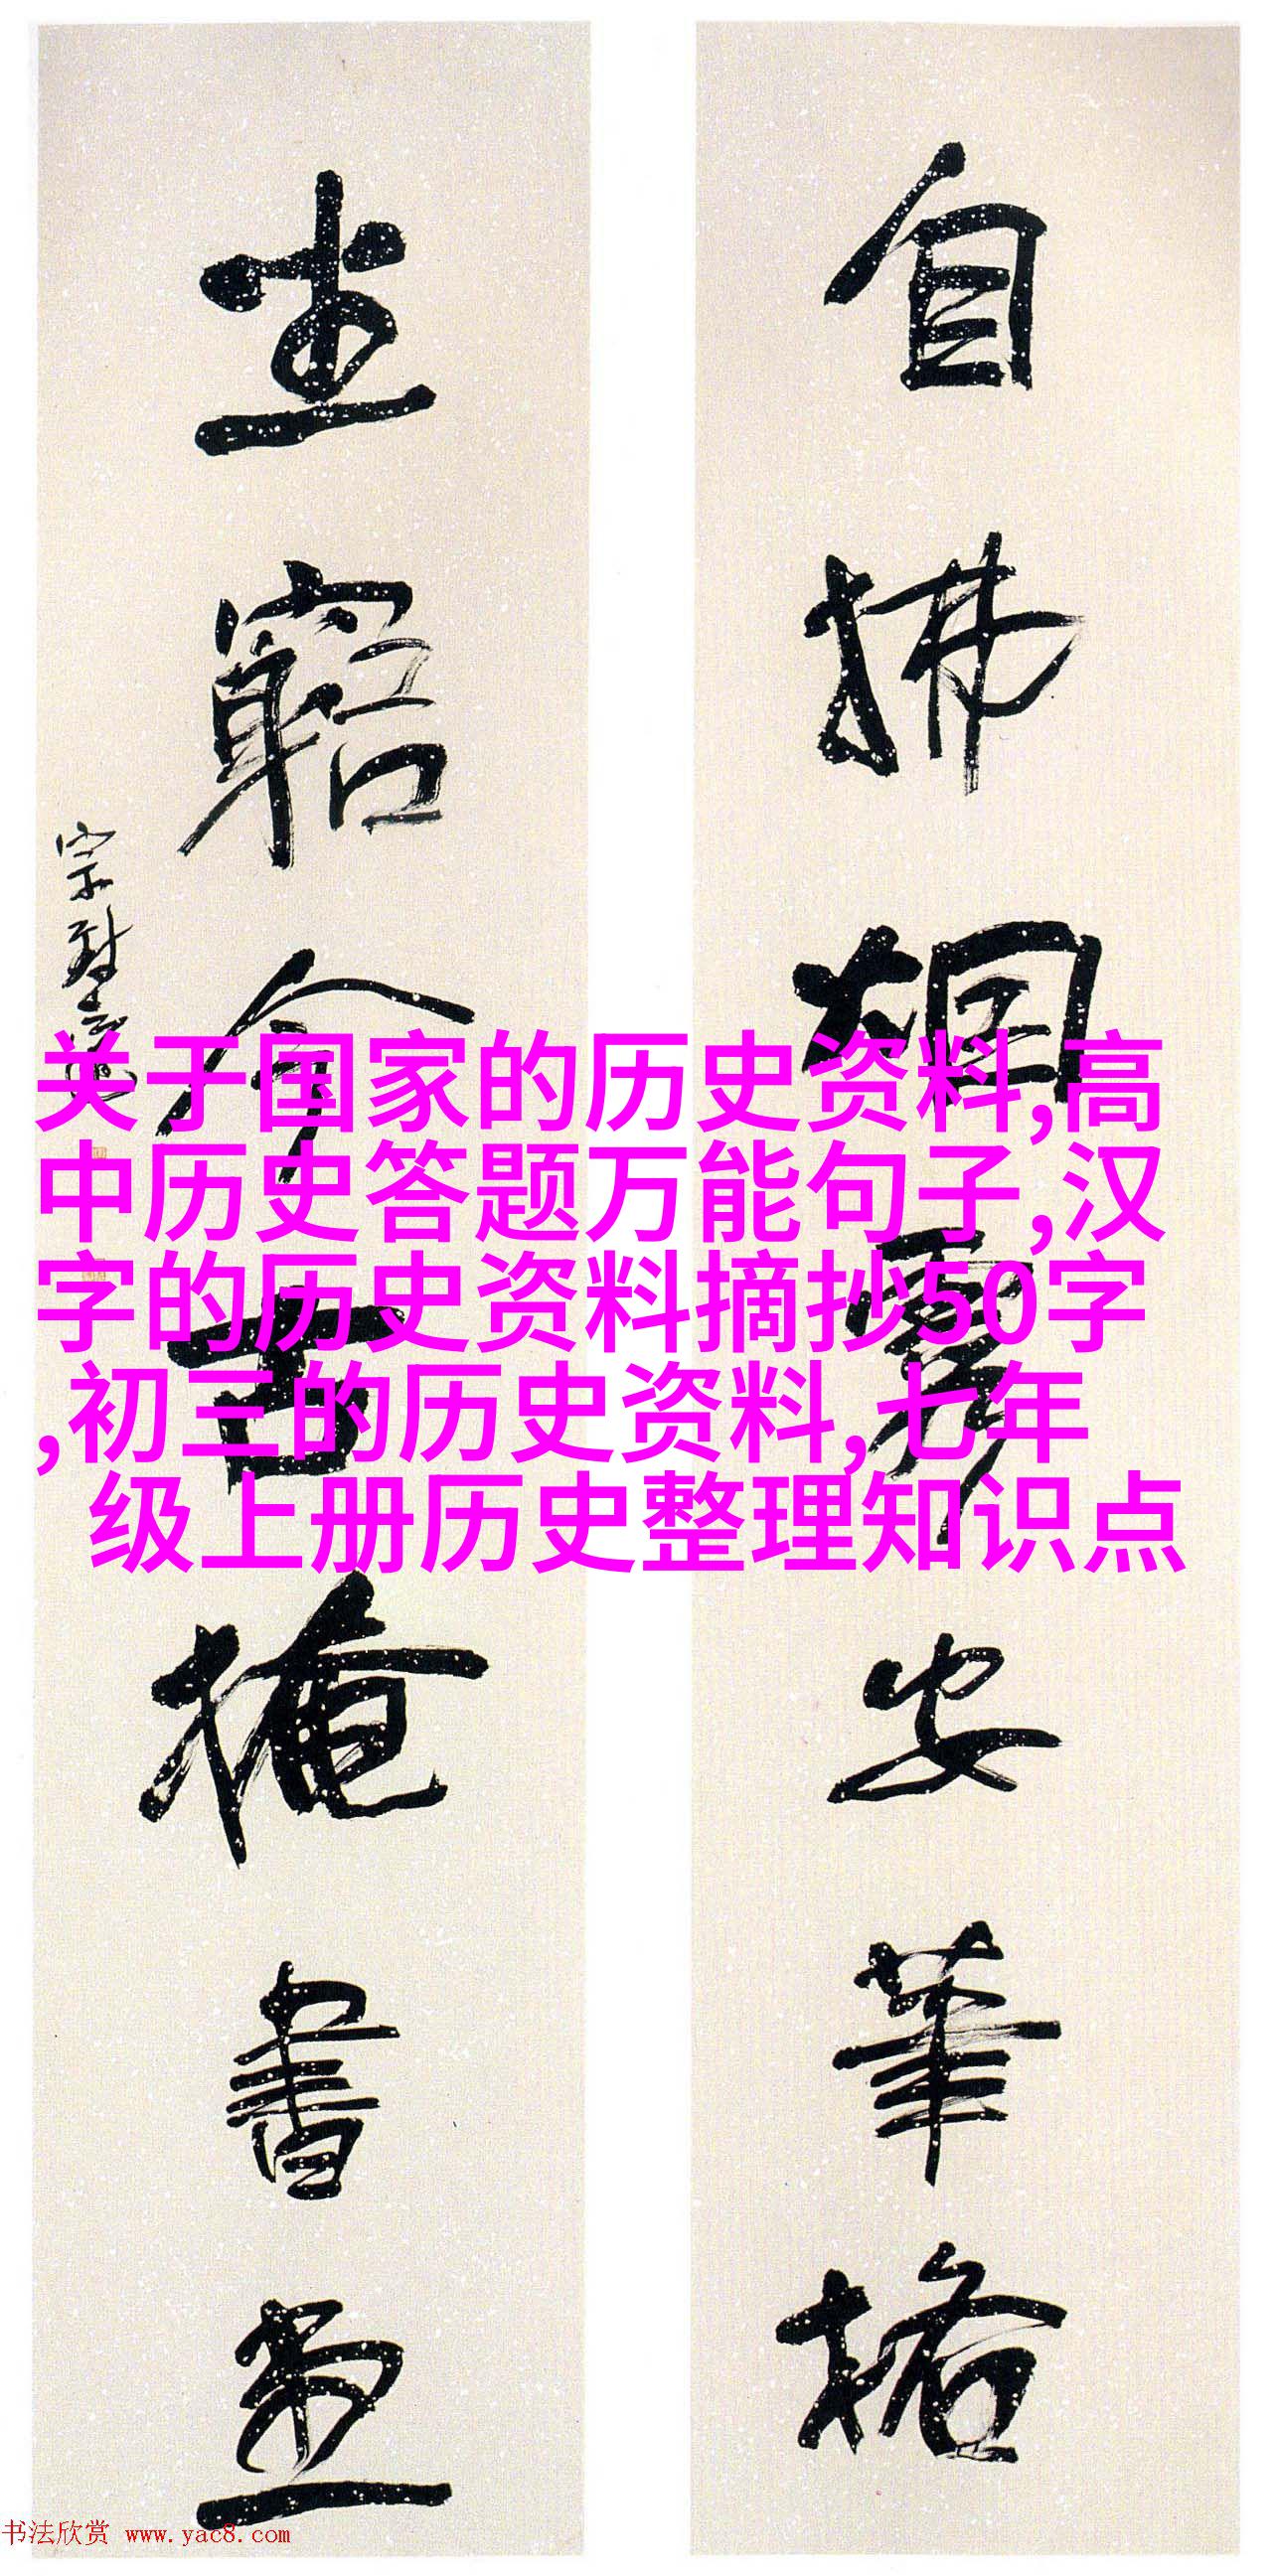 自拂烟霧安筆格
坐窮今古掩書堂
关于国家的历史资料,高
中历史答题万能句子,汉
字的历史资料摘抄50字
,初三的历史资料,七年
级上册历史整理知识点
书法欣赏 www.yac8.com